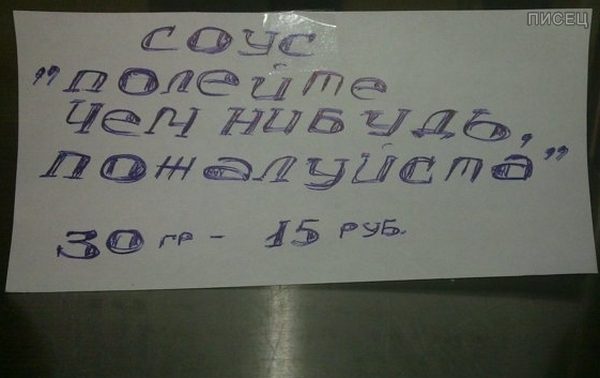 ПИСЕЦ
СОУС
"ПОЛЕЙТЕ
ЧЕМ НИБУДЬ,
ПОЖАЛУЙСТА"
30 ГР - 15 РУБ.